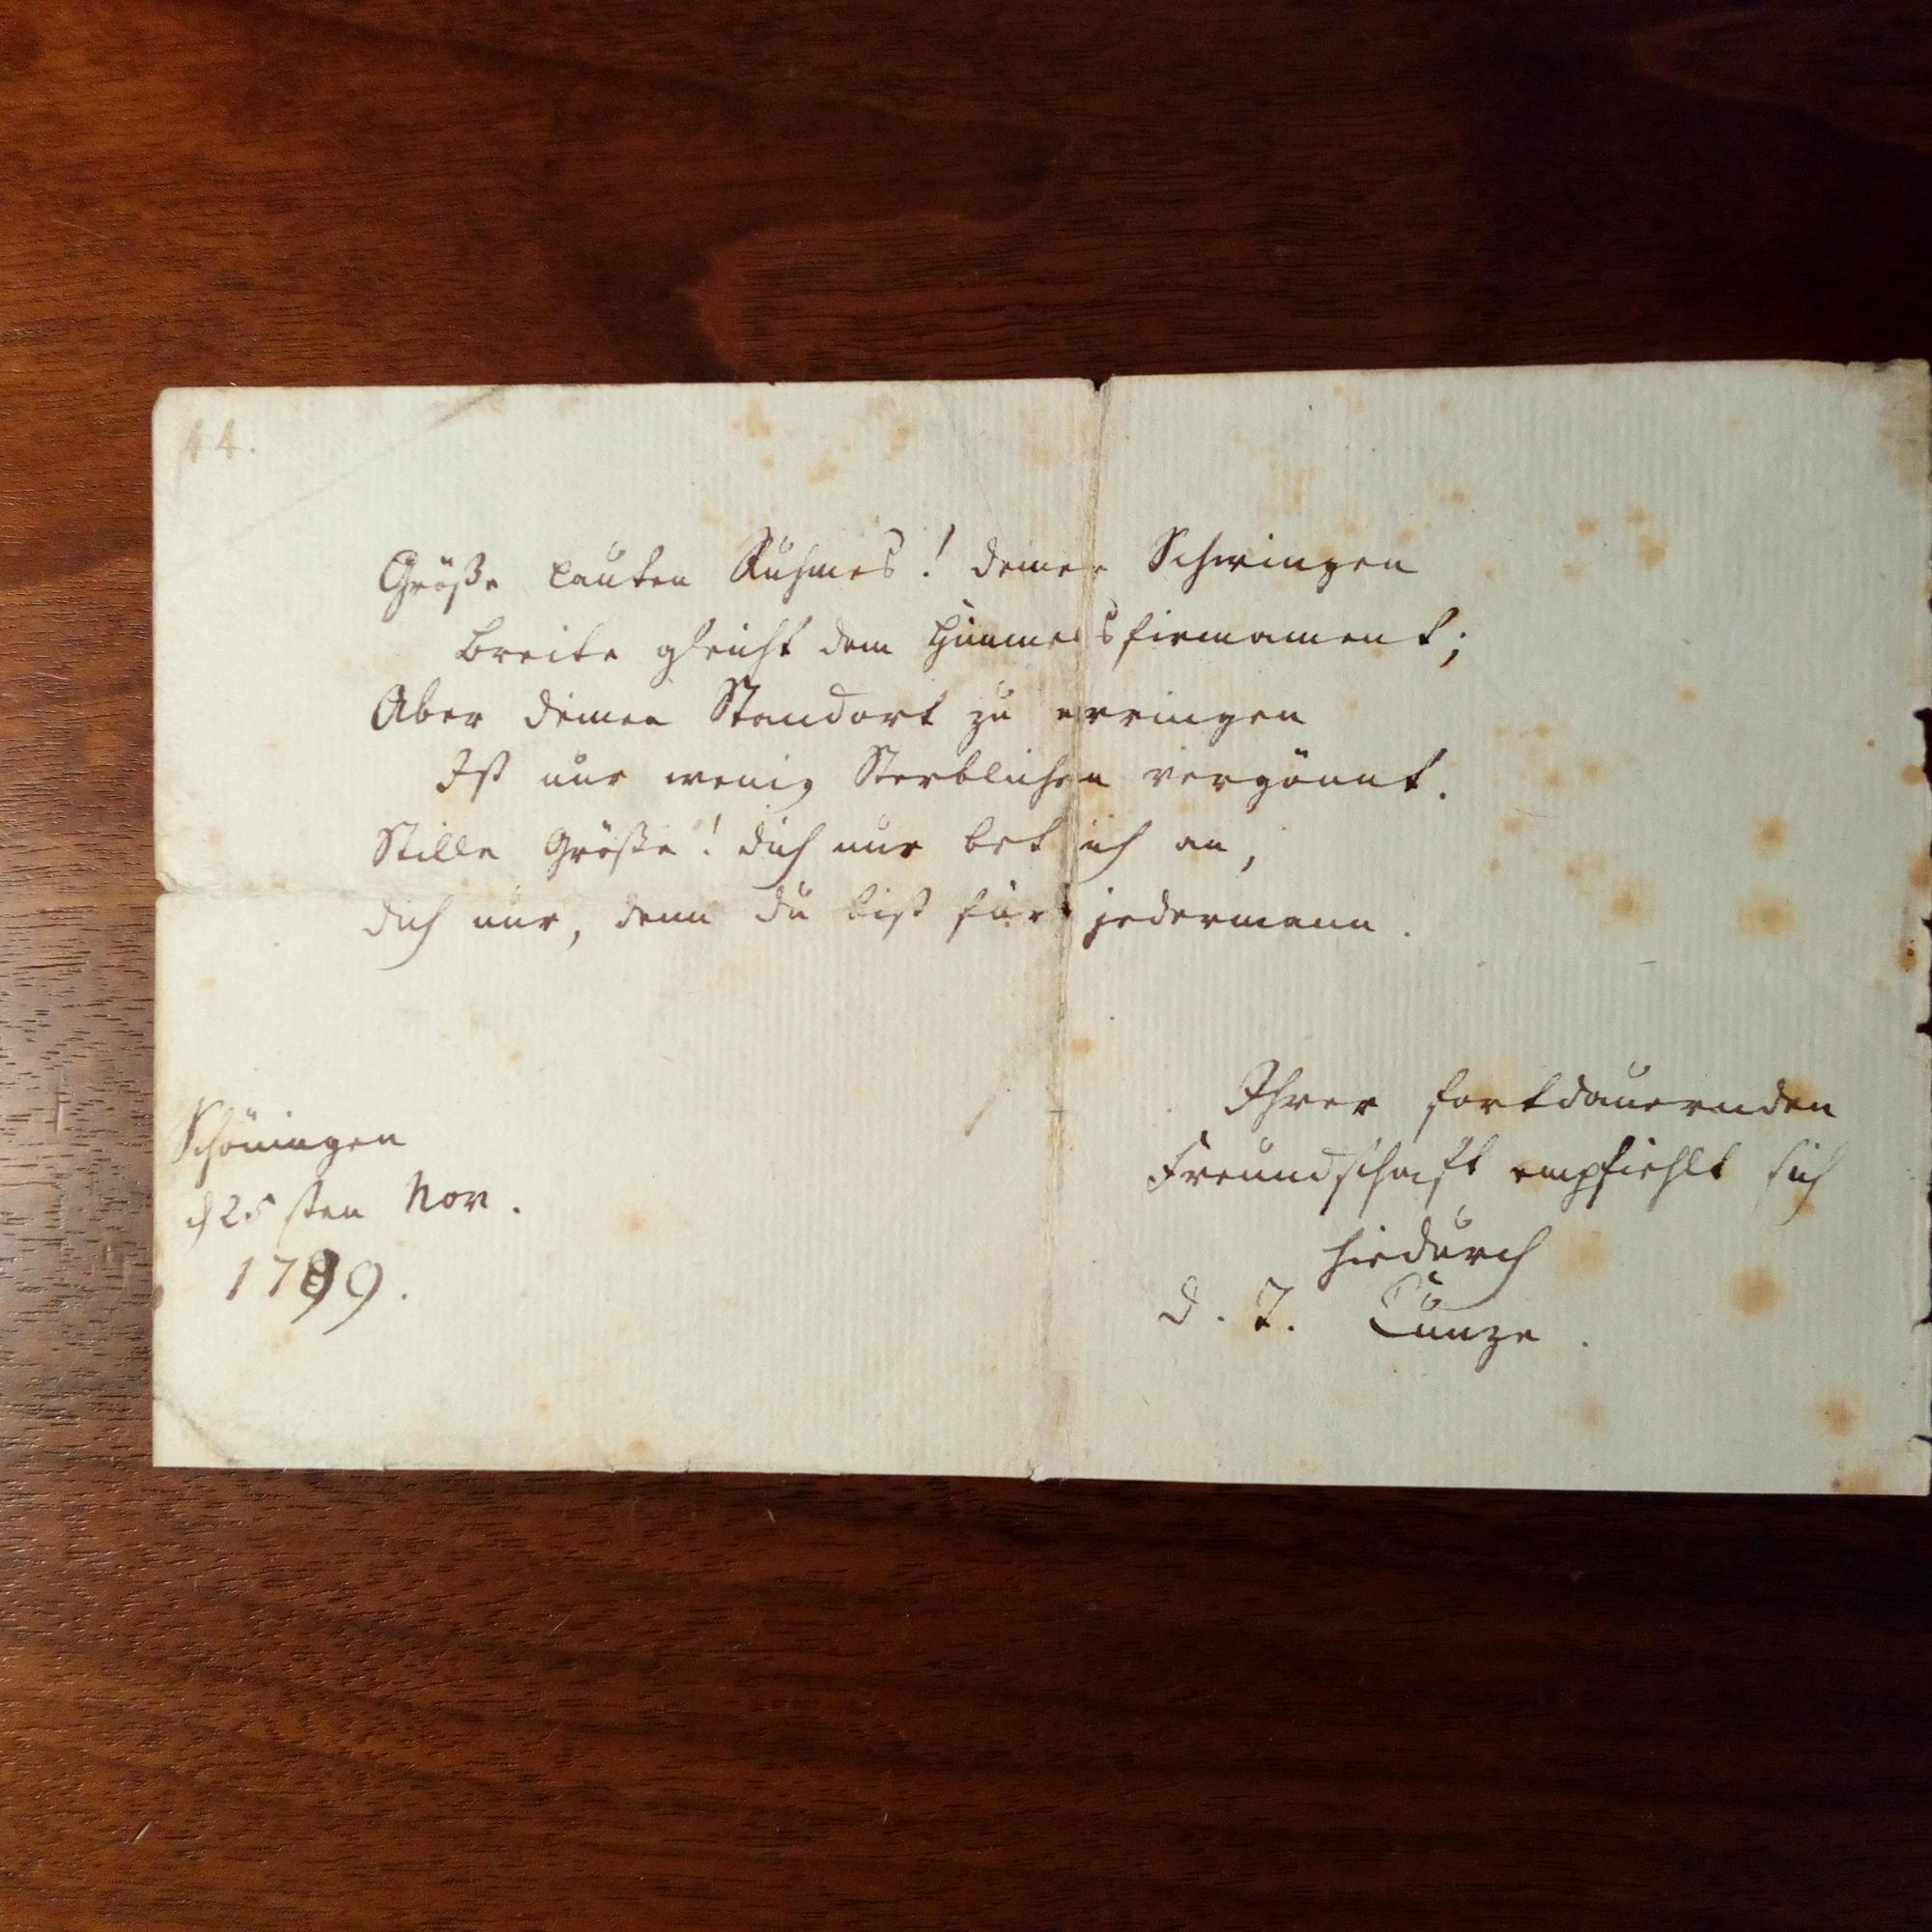 44.
Größe lauten Ruhmes! deiner Schwingen
Breite gleicht dem Himmelsfirmament;
Aber deinen Standort zu erringen
Ist nur wenig Sterblichen vergönnt.
Stille Größe! dich nur bet ich an,
dich nur, denn du bist für jedermann.
Ihrer fortdauernden
Freundschaft empfiehlt sich
hiedurch
Schöningen
d 25 sten Nov.
1789.
D. J. Cunze.